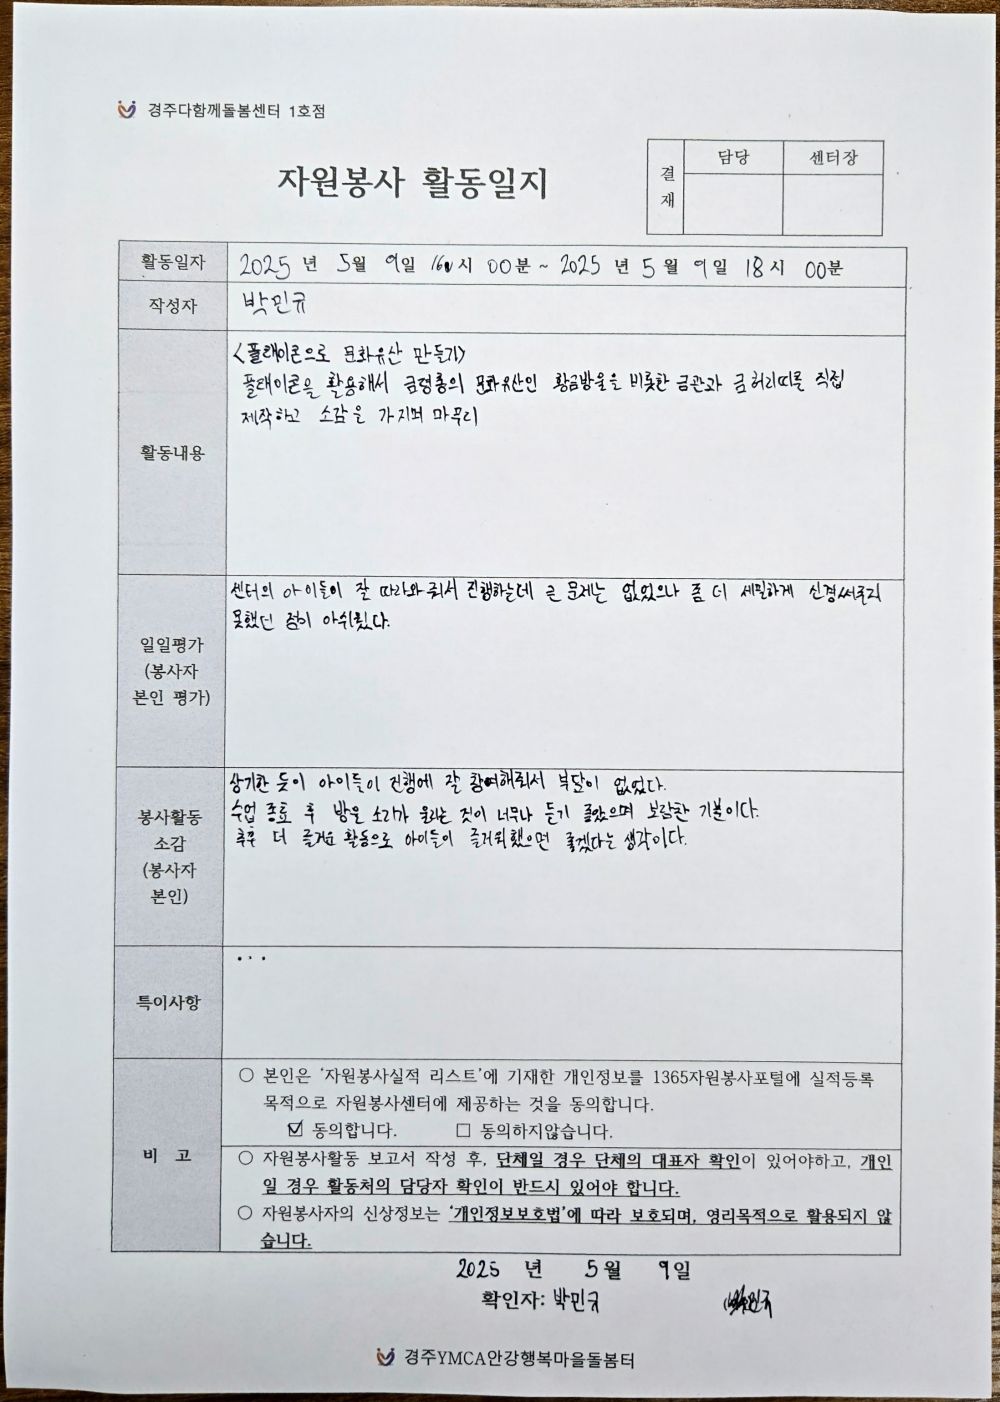 경주다함께돌봄센터 1호점
자원봉사 활동일지
결재 담당 센터장
활동일자 2025년 5월 9일 16시 00분 ~ 2025년 5월 9일 18시 00분
작성자 박민규
활동내용
<플레이콘으로 문화유산 만들기>
플레이콘을 활용해서 금령총의 문화유산인 황금방울을 비롯한 금관과 금허리띠를 직접
제작하고 소감을 가지며 마무리
일일평가
(봉사자
본인 평가)
센터의 아이들이 잘 따라와 줘서 진행하는데 큰 문제는 없었으나 좀 더 세밀하게 신경써주지
못했던 점이 아쉬웠다.
봉사활동
소감
(봉사자
본인)
상기한 듯이 아이들이 진행에 잘 참여해줘서 부담이 없었다.
수업 종료 후 방울 소리가 울리는 것이 너무나 듣기 좋았으며 보람찬 기분이다.
추후 더 즐거운 활동으로 아이들이 즐거워했으면 좋겠다는 생각이다.
특이사항
...
비 고
○ 본인은 '자원봉사실적 리스트'에 기재한 개인정보를 1365자원봉사포털에 실적등록
목적으로 자원봉사센터에 제공하는 것을 동의합니다.
☑ 동의합니다. □ 동의하지않습니다.
○ 자원봉사활동 보고서 작성 후, 단체일 경우 단체의 대표자 확인이 있어야하고, 개인
일 경우 활동처의 담당자 확인이 반드시 있어야 합니다.
○ 자원봉사자의 신상정보는 '개인정보보호법'에 따라 보호되며, 영리목적으로 활용되지 않
습니다.
2025 년 5월 9일
확인자: 박민규
경주YMCA안강행복마을돌봄터